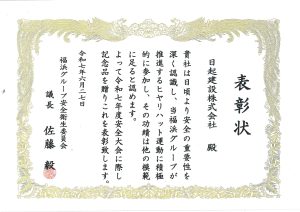 表彰状
日起建設株式会社 殿
貴社は日頃より安全の重要性を
深く認識し、当福浜グループが
推進するヒヤリハット運動に積極
的に参加し、その功績は他の模範
に足ると認めます。
よって令和七年度安全大会に際し
記念品を贈りこれを表彰致します。
令和七年六月二七日
福浜グループ安全衛生委員会
議長 佐藤 毅